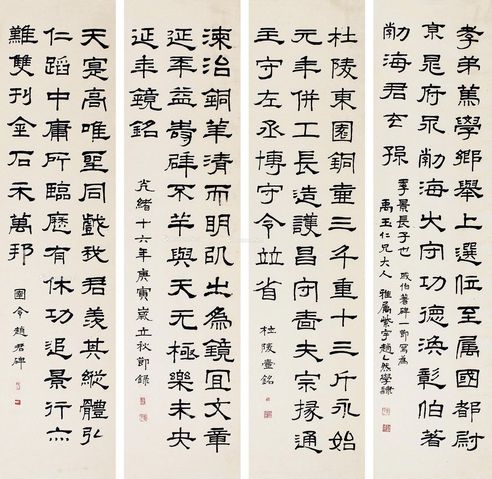 孝弟篤學鄉舉上選位至屬國都尉
京兆府丞勃海大守功德渙彰伯著
勃海君玄孫
季景長子也 戚伯著碑一節寫為
禹玉仁兄大人 雅屬紫宇趙然學隸
杜陵東園銅壺三斗重十三斤永始
元年供工長造護昌守嗇夫宗掾通
主守左丞博守令並省
杜陵壺銘
湅治銅華清而明㠯之為鏡宜文章
延年益壽辟不羊與天无極樂未央
延年鏡銘
光緒十六年庚寅歲立秋節錄
天寔高唯聖同戲我君羨其縱體弘
仁蹈中庸所臨歷有休功追景行亦
難雙刊金石示萬邦
圉令趙君碑